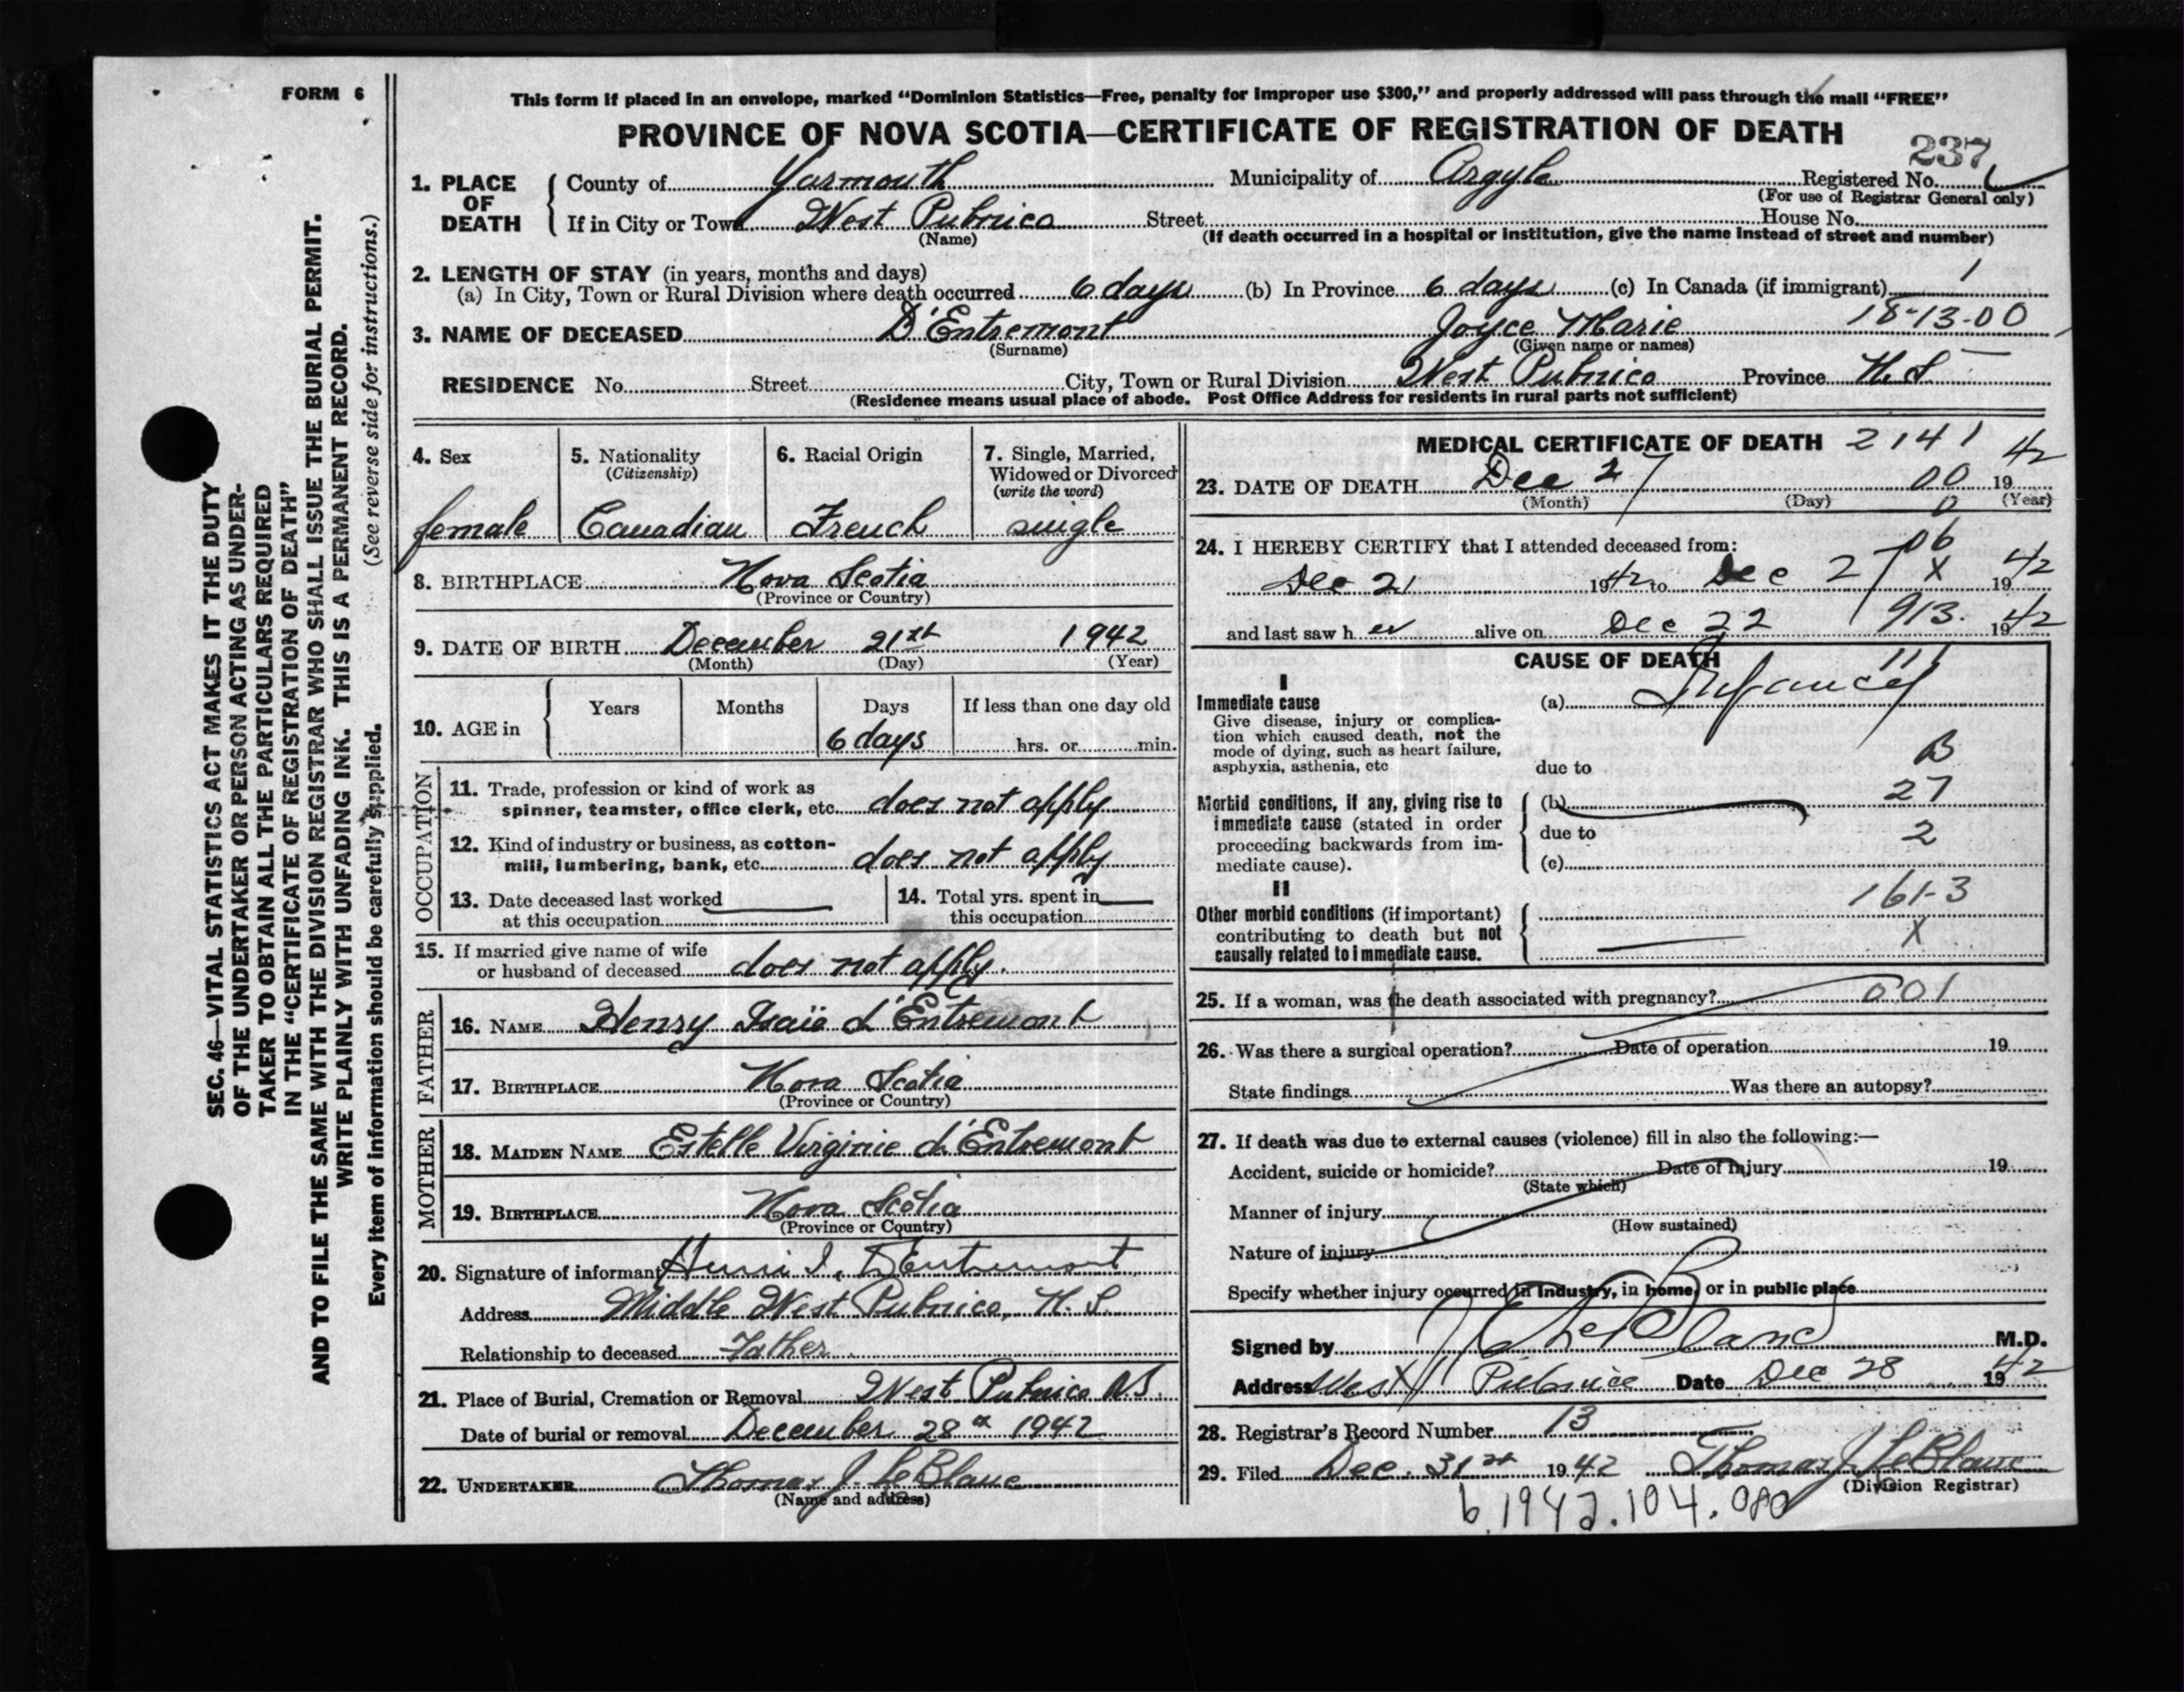 FORM 6
This form if placed in an envelope, marked “Dominion Statistics—Free, penalty for improper use $300,” and properly addressed will pass through the mail “FREE”
PROVINCE OF NOVA SCOTIA—CERTIFICATE OF REGISTRATION OF DEATH
237
1. PLACE OF DEATH { County of Yarmouth Municipality of Argyle Registered No.
(For use of Registrar General only)
If in City or Town West Pubnico Street House No.
(Name) (If death occurred in a hospital or institution, give the name instead of street and number)
2. LENGTH OF STAY (in years, months and days)
(a) In City, Town or Rural Division where death occurred 6 days (b) In Province 6 days (c) In Canada (if immigrant) 1
3. NAME OF DECEASED D'Entremont Joyce Marie 18-13-00
(Surname) (Given name or names)
RESIDENCE No. Street City, Town or Rural Division West Pubnico Province N.S
(Residence means usual place of abode. Post Office Address for residents in rural parts not sufficient)
4. Sex 5. Nationality (Citizenship) 6. Racial Origin 7. Single, Married, Widowed or Divorced (write the word)
female Canadian French single
8. BIRTHPLACE Nova Scotia
(Province or Country)
9. DATE OF BIRTH December 21st 1942
(Month) (Day) (Year)
10. AGE in { Years Months Days If less than one day old
6 days hrs. or min.
OCCUPATION
11. Trade, profession or kind of work as
spinner, teamster, office clerk, etc. does not apply
12. Kind of industry or business, as cotton-
mill, lumbering, bank, etc. does not apply
13. Date deceased last worked
at this occupation
14. Total yrs. spent in
this occupation
15. If married give name of wife
or husband of deceased does not apply.
FATHER
16. NAME Henry Isaïe d'Entremont
17. BIRTHPLACE Nova Scotia
(Province or Country)
MOTHER
18. MAIDEN NAME Estelle Virginie d'Entremont
19. BIRTHPLACE Nova Scotia
(Province or Country)
20. Signature of informant Henri I. D'Entremont
Address Middle West Pubnico, N.S.
Relationship to deceased Father
21. Place of Burial, Cremation or Removal West Pubnico N.S.
Date of burial or removal December 28th 1942
22. UNDERTAKER Thomas J. LeBlanc
(Name and address)
MEDICAL CERTIFICATE OF DEATH 2141
23. DATE OF DEATH Dec 27 00 1942
(Month) (Day) 0 (Year)
24. I HEREBY CERTIFY that I attended deceased from: 06
Dec 21 1942 to Dec 27 X 1942
and last saw her alive on Dec 22 913. 1942
CAUSE OF DEATH 111
I
Immediate cause (a) Infancy
Give disease, injury or complica-
tion which caused death, not the
mode of dying, such as heart failure,
asphyxia, asthenia, etc due to B
Morbid conditions, if any, giving rise to (b) 27
immediate cause (stated in order due to 2
proceeding backwards from im-
mediate cause). (c)
II 161-3
Other morbid conditions (if important)
contributing to death but not X
causally related to immediate cause.
25. If a woman, was the death associated with pregnancy? 001
26. Was there a surgical operation? Date of operation 19
State findings Was there an autopsy?
27. If death was due to external causes (violence) fill in also the following:—
Accident, suicide or homicide? Date of injury 19
(State which)
Manner of injury
(How sustained)
Nature of injury
Specify whether injury occurred in industry, in home, or in public place
Signed by LeBlanc M.D.
Address West Pubnico Date Dec 28 1942
28. Registrar's Record Number 13
29. Filed Dec. 31st 1942 Thomas J. LeBlanc
(Division Registrar)
b.1942.104.080
SEC. 46—VITAL STATISTICS ACT MAKES IT THE DUTY
OF THE UNDERTAKER OR PERSON ACTING AS UNDER-
TAKER TO OBTAIN ALL THE PARTICULARS REQUIRED
IN THE “CERTIFICATE OF REGISTRATION OF DEATH”
AND TO FILE THE SAME WITH THE DIVISION REGISTRAR WHO SHALL ISSUE THE BURIAL PERMIT.
WRITE PLAINLY WITH UNFADING INK. THIS IS A PERMANENT RECORD.
Every item of information should be carefully supplied. (See reverse side for instructions.)